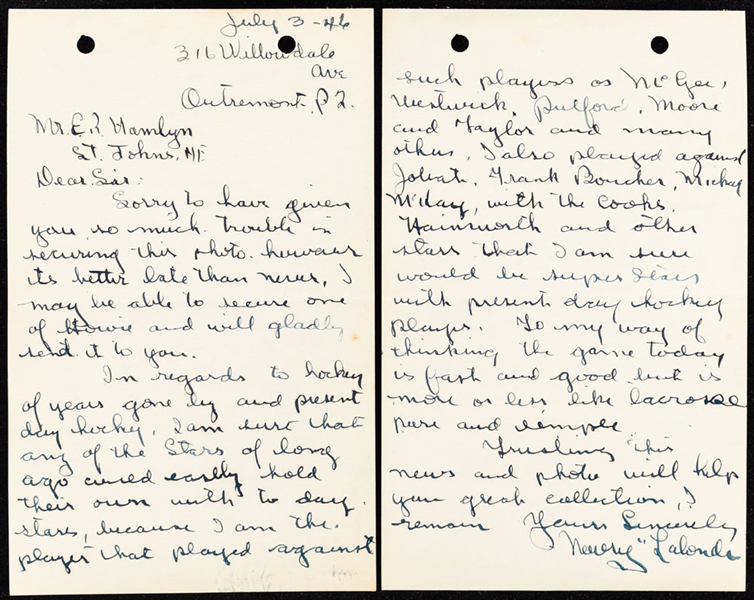 July 3-46
316 Willowdale
Ave
Outremont, P2.
Mr. E.R. Hamlyn
St. Johns, NF
Dear Sir:
Sorry to have given
you so much trouble in
securing this photo. however
its better late than never, I
may be able to secure one
of Howie and will gladly
send it to you.
In regards to hockey
of years gone by and present
day hockey, I am sure that
any of the Stars of long
ago could easily hold
their own with to day.
stars, because I am the
player that played against
such players as McGee,
Westwick, Pulford, Moore
and Taylor and many
others, I also played against
Joliat, Frank Boucher, Mickey
McKay, with the Cooks.
Hainsworth and other
stars that I am sure
would be super stars
with present day hockey
players. To my way of
thinking the game today
is fast and good but is
more or less like lacrosse
pure and simple
Trusting this
news and photo will help
your great collection, I
remain Yours Sincerely
"Newsy" Lalonde